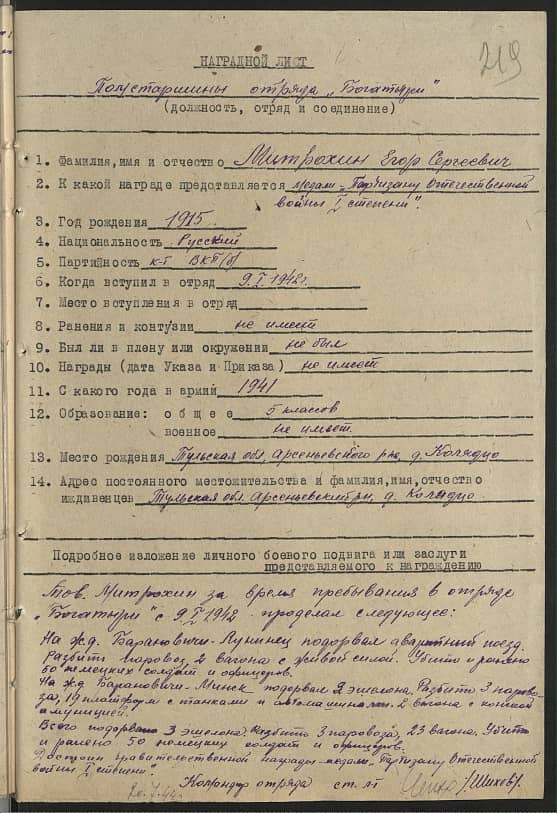 219
НАГРАДНОЙ ЛИСТ
отряда „Богатыри"
(должность, отряд и соединение)
1. Фамилия, имя и отчество Митрохин Егор Сергеевич
2. К какой награде представляется медали „Партизану Отечественной
войны I степени".
3. Год рождения 1915
4. Национальность Русский
5. Партийность к-т ВКП(б)
6. Когда вступил в отряд 1942г.
7. Место вступления в отряд
8. Ранения и контузии не имеет
9. Был ли в плену или окружении не был
10. Награды (дата Указа и Приказа) не имеет
11. С какого года в армий 1941
12. Образование: общее 5 классов
военное не имеет
13. Место рождения Тульская обл. Арсеньевского р-на, д.
14. Адрес постоянного местожительства и фамилия, имя, отчество
иждивенцев Тульская обл. Арсеньевский р-н, д.
Подробное изложение личного боевого подвига или заслуги
представляемого к награждению
Тов. Митрохин за время пребывания в отряде
„Богатыри" с 1942 проделал следующее:
На ж.д. Барановичи-Лунинец подорвал поезд.
Разбиты паровоз, 2 вагона с живой силой. Убито и ранено
50 немецких солдат и офицеров.
На жд Барановичи-Минск подорвал 2 эшелона. Разбито 3 парово-
за, 19 платформ с танками и автомашинами. 2 вагона с
амуницией.
Всего подорвано 3 эшелона. Разбито 3 паровоза, 23 вагона. Убито
и ранено 50 немецких солдат и офицеров.
Достоин правительственной награды-медали „Партизану Отечественной
войны I степени".
Командир отряда ст. л-т